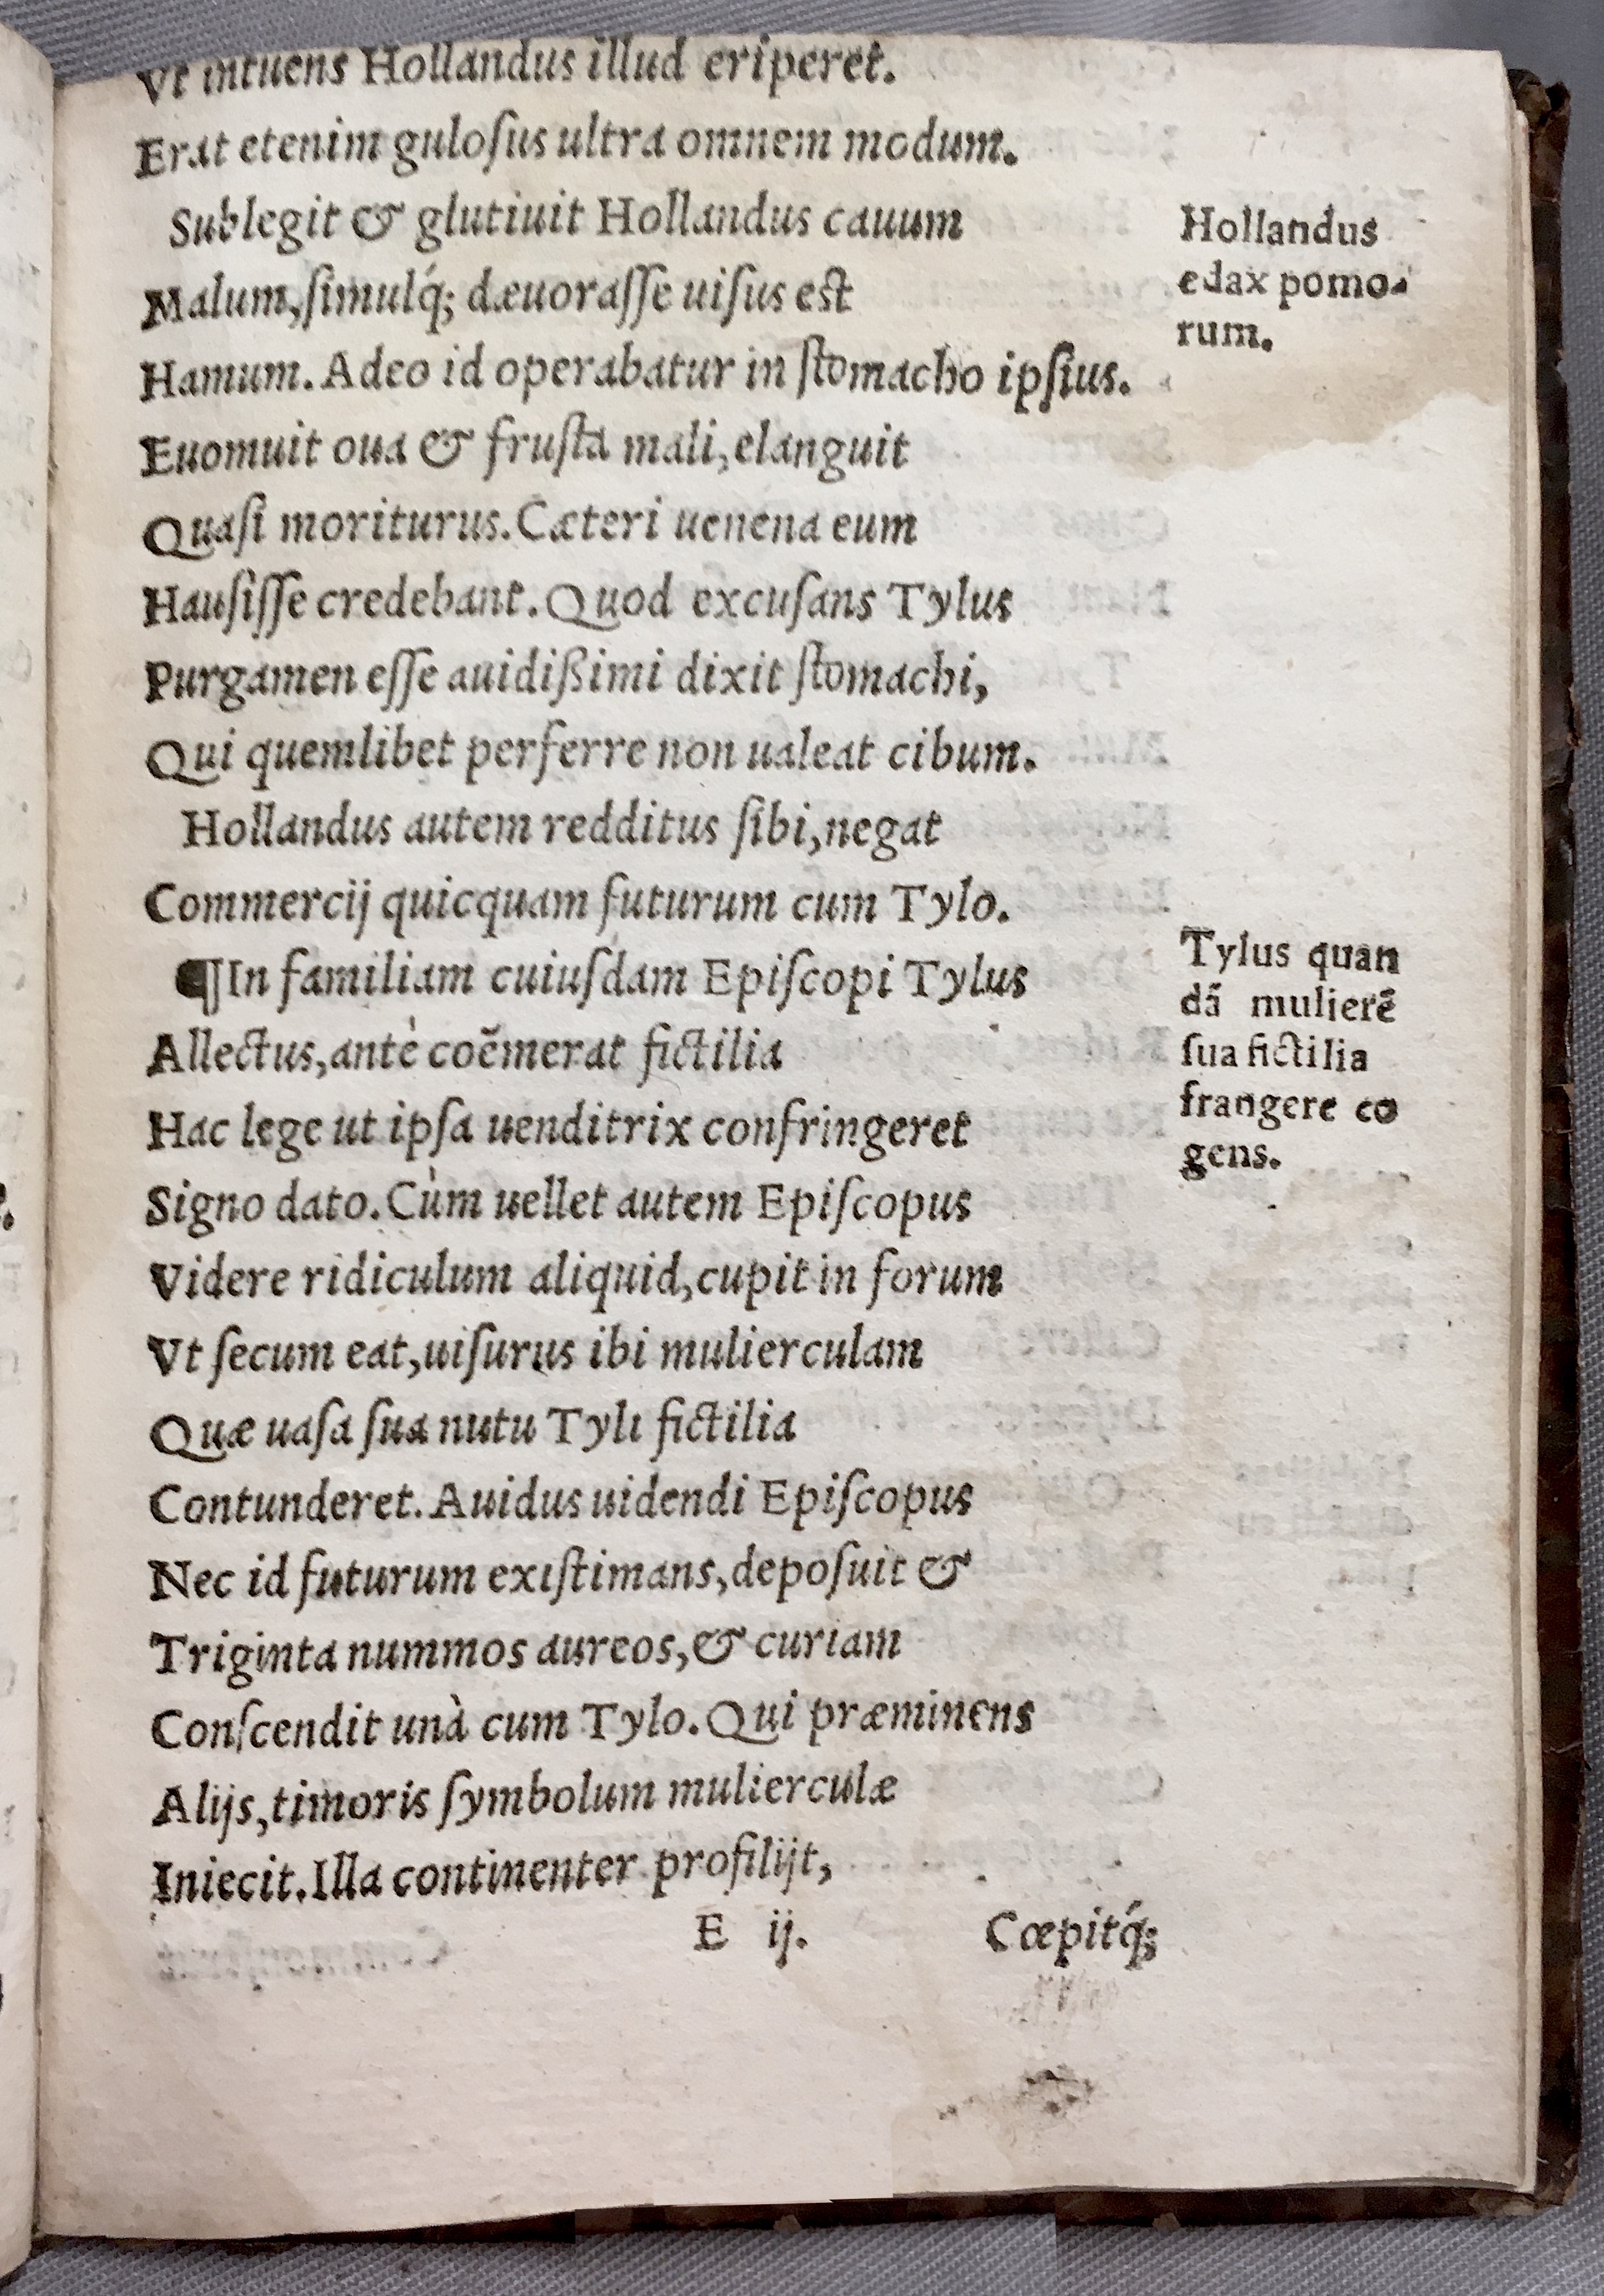 Vt intuens Hollandus illud eriperet.
Erat etenim guloſus ultra omnem modum.
Sublegit & glutiuit Hollandus cauum
Malum,ſimulq́; dæuoraſſe uiſus est
Hamum. Adeo id operabatur in ſtomacho ipſius.
Euomuit oua & fruſta mali,elanguit
Quaſi moriturus. Cæteri uenena eum
Hauſiſſe credebant. Quod excuſans Tylus
Purgamen eſſe auidißimi dixit ſtomachi,
Qui quemlibet perferre non ualeat cibum.
Hollandus autem redditus ſibi,negat
Commercij quicquam futurum cum Tylo.
¶In familiam cuiuſdam Epiſcopi Tylus
Allectus,antè coëmerat fictilia
Hac lege ut ipſa uenditrix confringeret
Signo dato. Cùm uellet autem Epiſcopus
Videre ridiculum aliquid,cupit in forum
Vt ſecum eat,uiſurus ibi mulierculam
Quæ uaſa ſua nutu Tyli fictilia
Contunderet. Auidus uidendi Epiſcopus
Nec id futurum exiſtimans,depoſuit &
Triginta nummos aureos,& curiam
Conſcendit unà cum Tylo. Qui præminens
Alijs,timoris ſymbolum mulierculæ
Iniecit. Illa continenter proſilijt,
E ij. Cœpitq́;
Hollandus
edax pomo-
rum.
Tylus quan
dã mulierẽ
ſua fictilia
frangere co
gens.